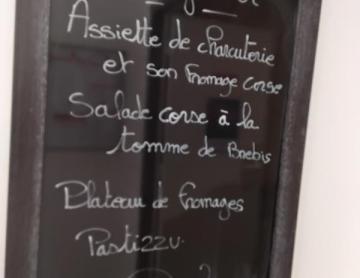 Assiette de charcuterie
et son fromage corse
Salade corse à la
tomme de Brebis
Plateau de fromages
Pastizzu